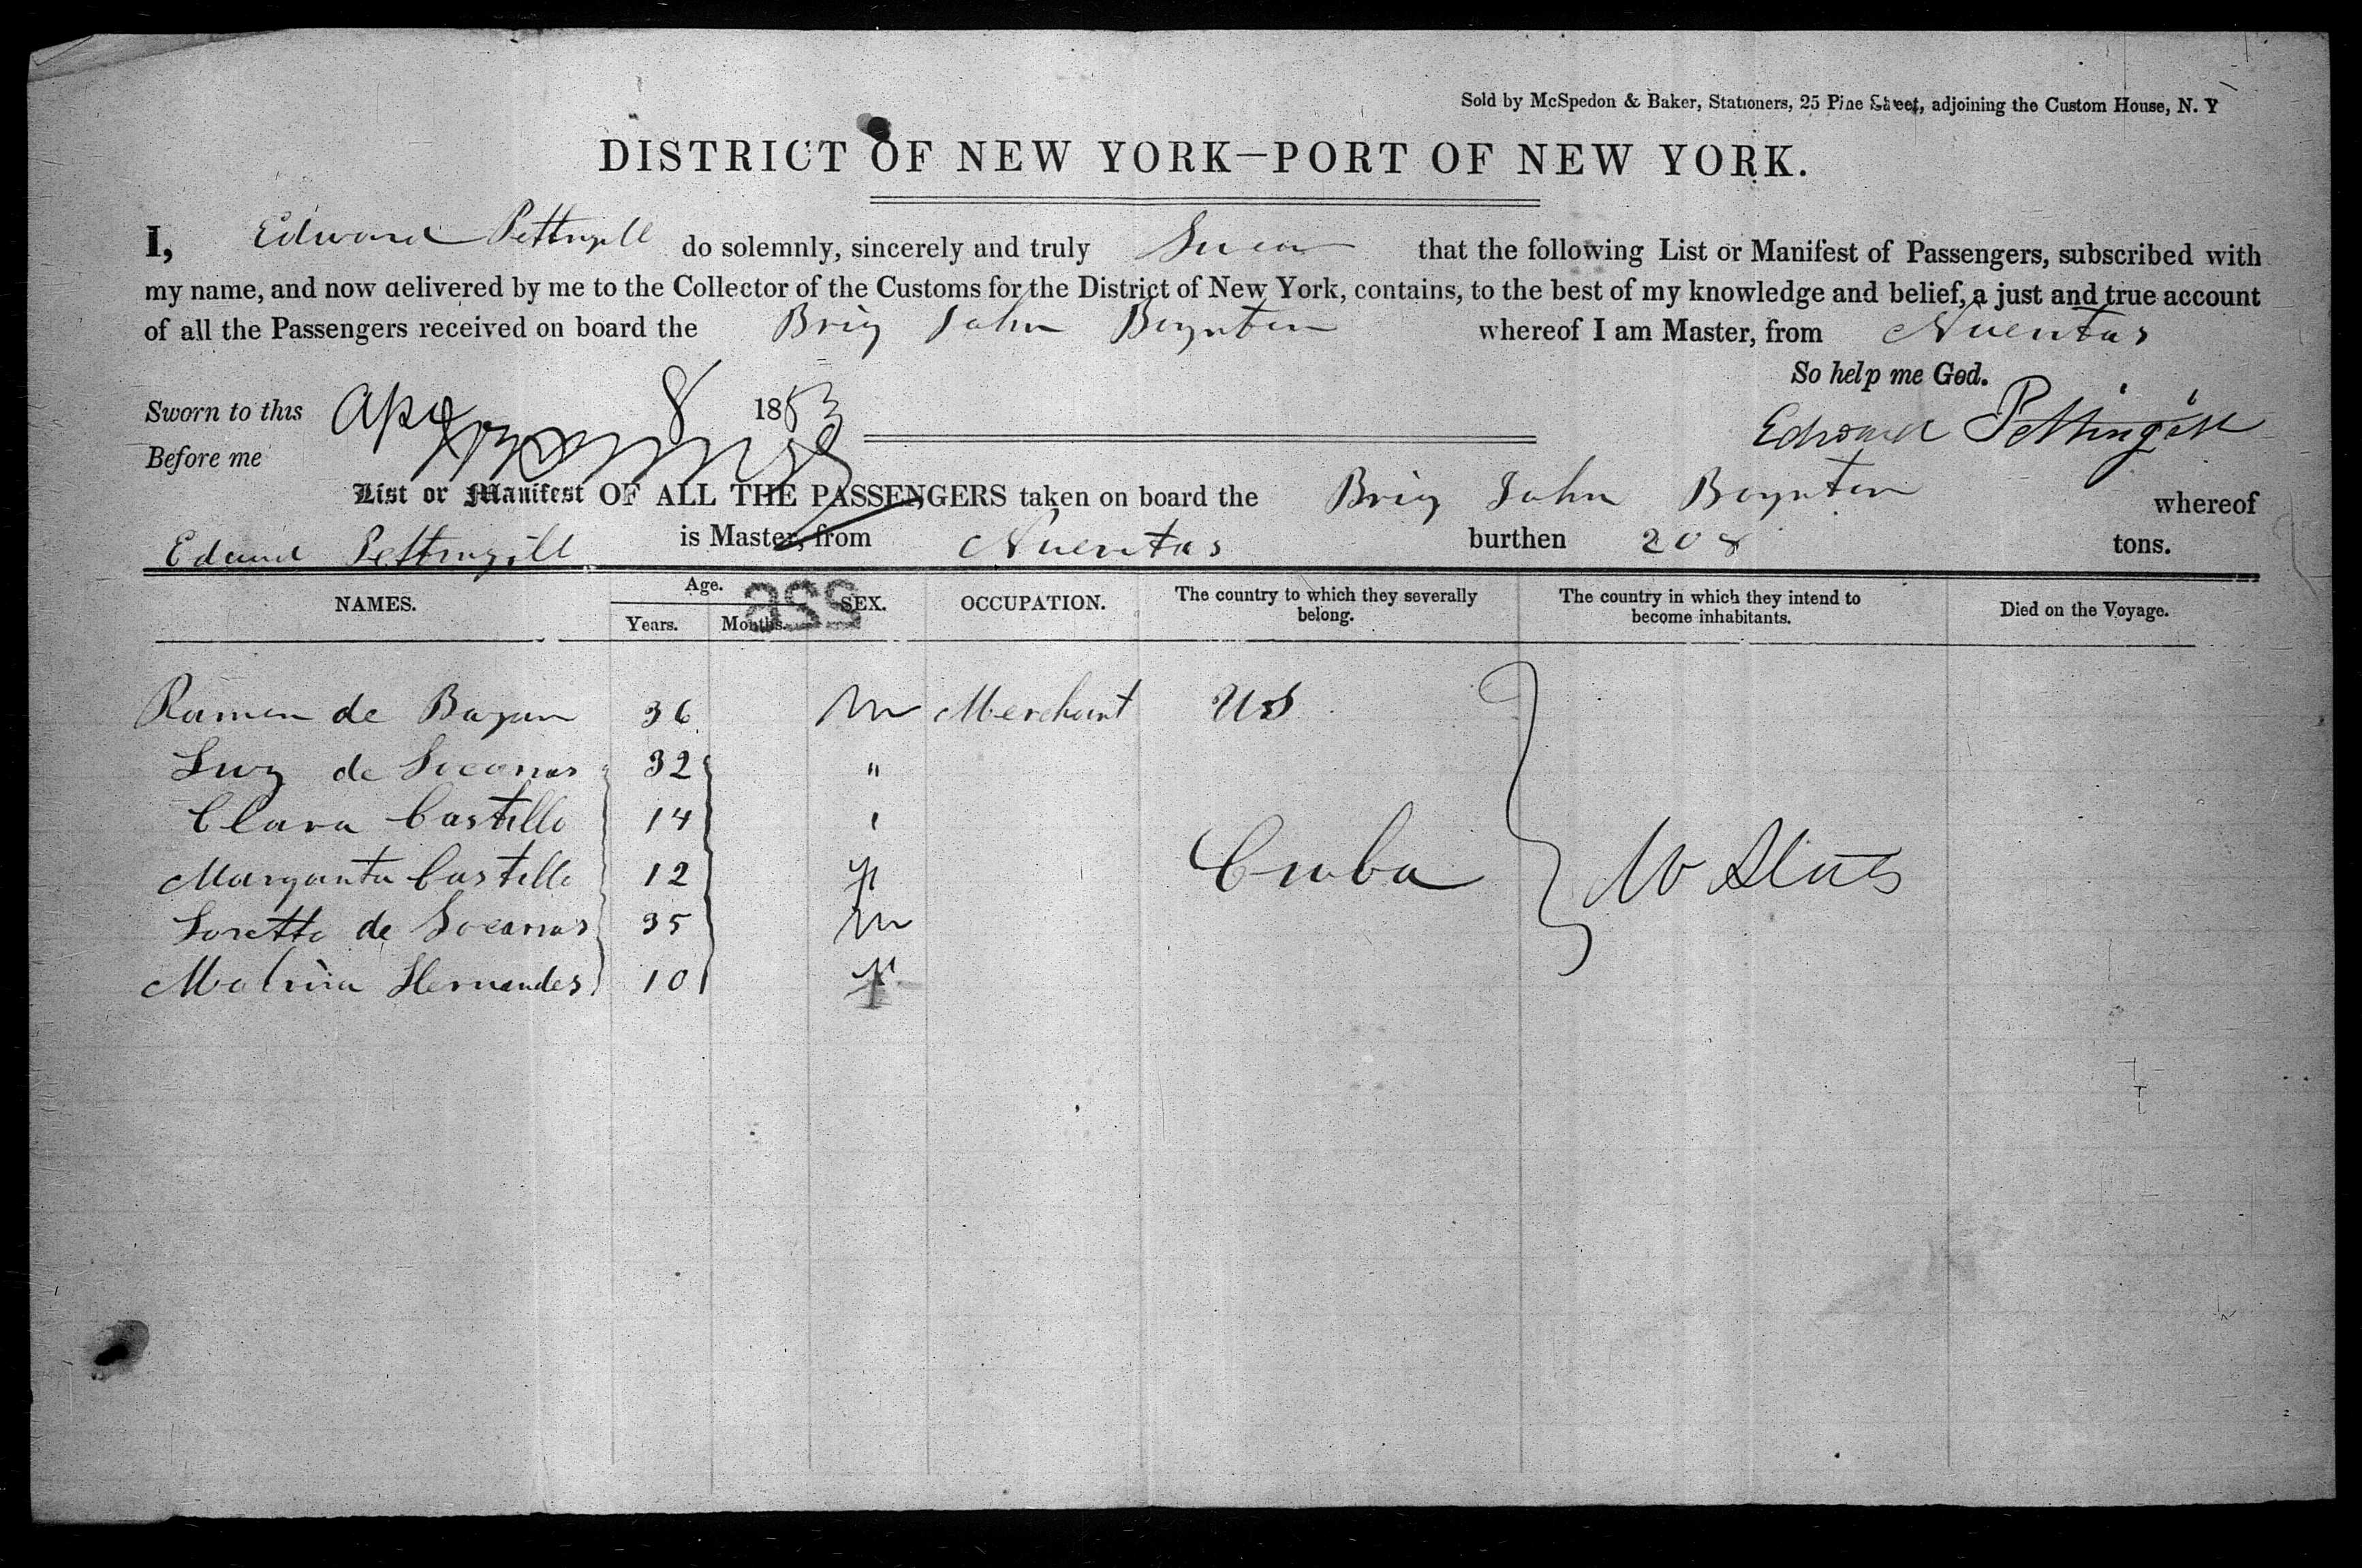 Sold by McSpedon & Baker, Stationers, 25 Pine Street, adjoining the Custom House, N. Y
DISTRICT OF NEW YORK—PORT OF NEW YORK.
I, Edward Pettingill do solemnly, sincerely and truly Swear that the following List or Manifest of Passengers, subscribed with
my name, and now delivered by me to the Collector of the Customs for the District of New York, contains, to the best of my knowledge and belief, a just and true account
of all the Passengers received on board the Brig John Boynton whereof I am Master, from Nuevitas
So help me God.
Sworn to this Apl 8 1853
Edward Pettingill
Before me
List or Manifest OF ALL THE PASSENGERS taken on board the Brig John Boynton whereof
Edward Pettingill is Master, from Nuevitas burthen 208 tons.
NAMES. Age. Years. Months. SEX. OCCUPATION. The country to which they severally belong. The country in which they intend to become inhabitants. Died on the Voyage.
556
Ramon de Bazan 36 M Merchant US
Luz de Socarras 32 "
Clara Castillo 14 "
Margarita Castillo 12 F Cuba U States
Loretto de Socarras 35 M
Malvina Hernandes 10 F